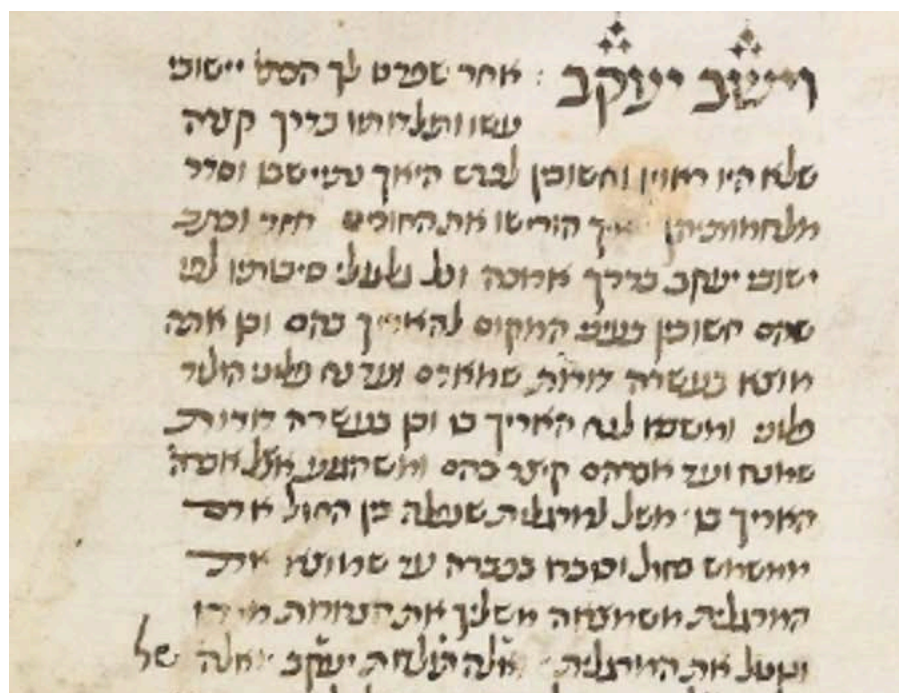 וישב יעקב : אחר שפרט לך הכת' יישובי
עשו ותולדותיו בדרך קצרה
שלא היו ראוין וחשובין לפרש היאך נתיישבו וסדר
מלחמותיהן איך הורישו את החורים חזר וכתב
ישובי יעקב בדרך ארוכה וכל גלגולי סיבותיו לפי
שהם חשובין בעיני המקום להאריך בהם וכן אתה
מוצא בעשרה דורות שמאדם ועד נח פלוני הוליד
פלוני ומשבא לנח האריך בו וכן בעשרה דורות
שמנח ועד אברהם קיצר בהם ומשהגיע אצל אברה'
האריך בו משל למרגלית שנפלה בין החול אדם
ממשמש בחול וכוברו בכברה עד שמוצא את
המרגלית משמצאה משליך את הצרורות מידו
ונוטל את המרגלית אלה תולדות יעקב ואלה של